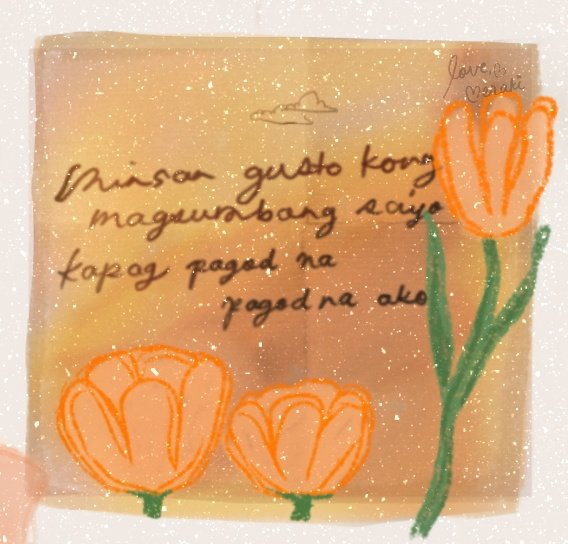 love,
Meraki
Minsan gusto kong
magsumbong saiyo
kapag pagod na
pagod na ako